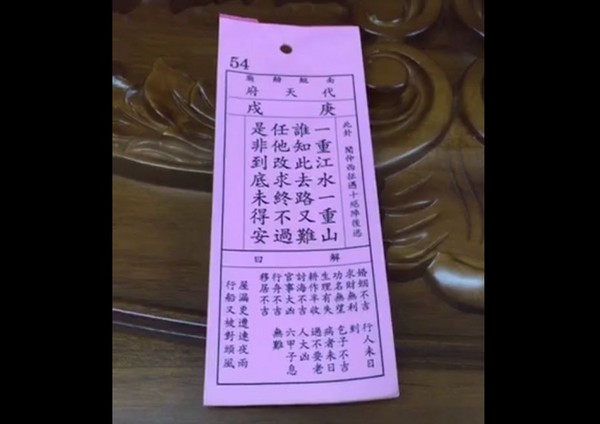 54
南鯤鯓廟
代天府
庚戌
此卦 聞仲西征遇十絕陣後逃
一重江水一重山
誰知此去路又難
任他改求終不過
是非到底未得安
解曰
婚姻不吉
求財無利
功名無望
生理有失
耕作半收
討海不吉
官事大凶
行舟不吉
移居不吉
行人未日
到
包子不吉
病者未日
過不要老
人大凶
六甲子息
無難
屋漏更遭連夜雨
行船又被對頭風